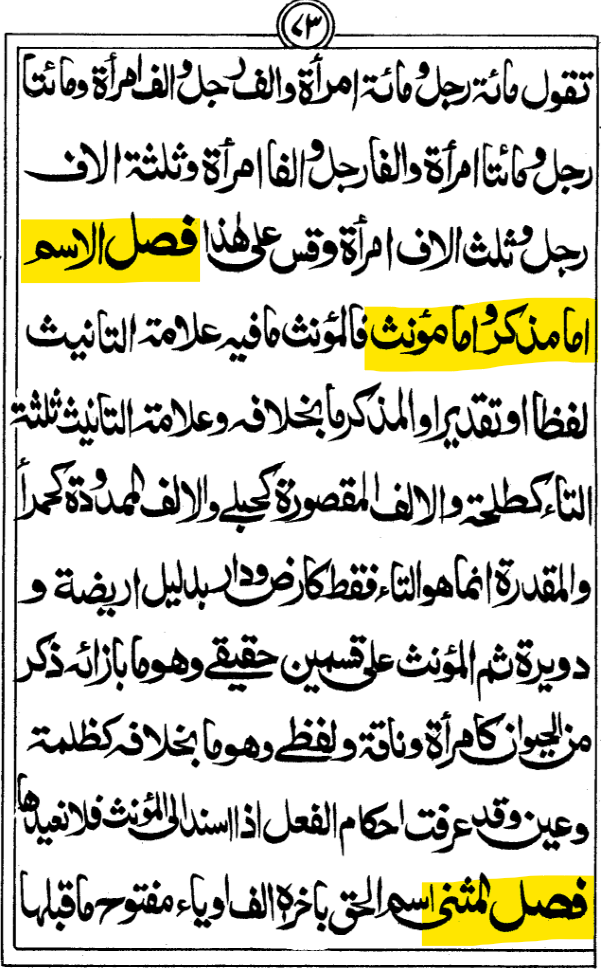 ٧٣
تقول مائة رجل و مائة امرأة والف رجل والف امرأة ومائتا
رجل و مائتا امرأة والفا رجل والفا امرأة وثلثة الاف
رجل وثلث الاف امرأة وقس على هذا فصل الاسم
اما مذكر واما مؤنث فالمؤنث ما فيه علامة التانيث
لفظا او تقديرا والمذكر ما بخلافه وعلامة التانيث ثلثة
التاء كطلحة والالف المقصورة كحبلے والالف الممدودة كحمرأ
والمقدرة انما هو التاء فقط كارض ودار بدليل اريضة و
دويرة ثم المؤنث على قسمين حقيقے وهو ما بازائه ذكر
من الحيوان كامرأة وناقة ولفظے وهو ما بخلافه كظلمة
وعين وقد عرفت احكام الفعل اذا اسند الى المؤنث فلا نعيدها
فصل المثنى اسم الحق باخره الف او ياء مفتوح ما قبلها